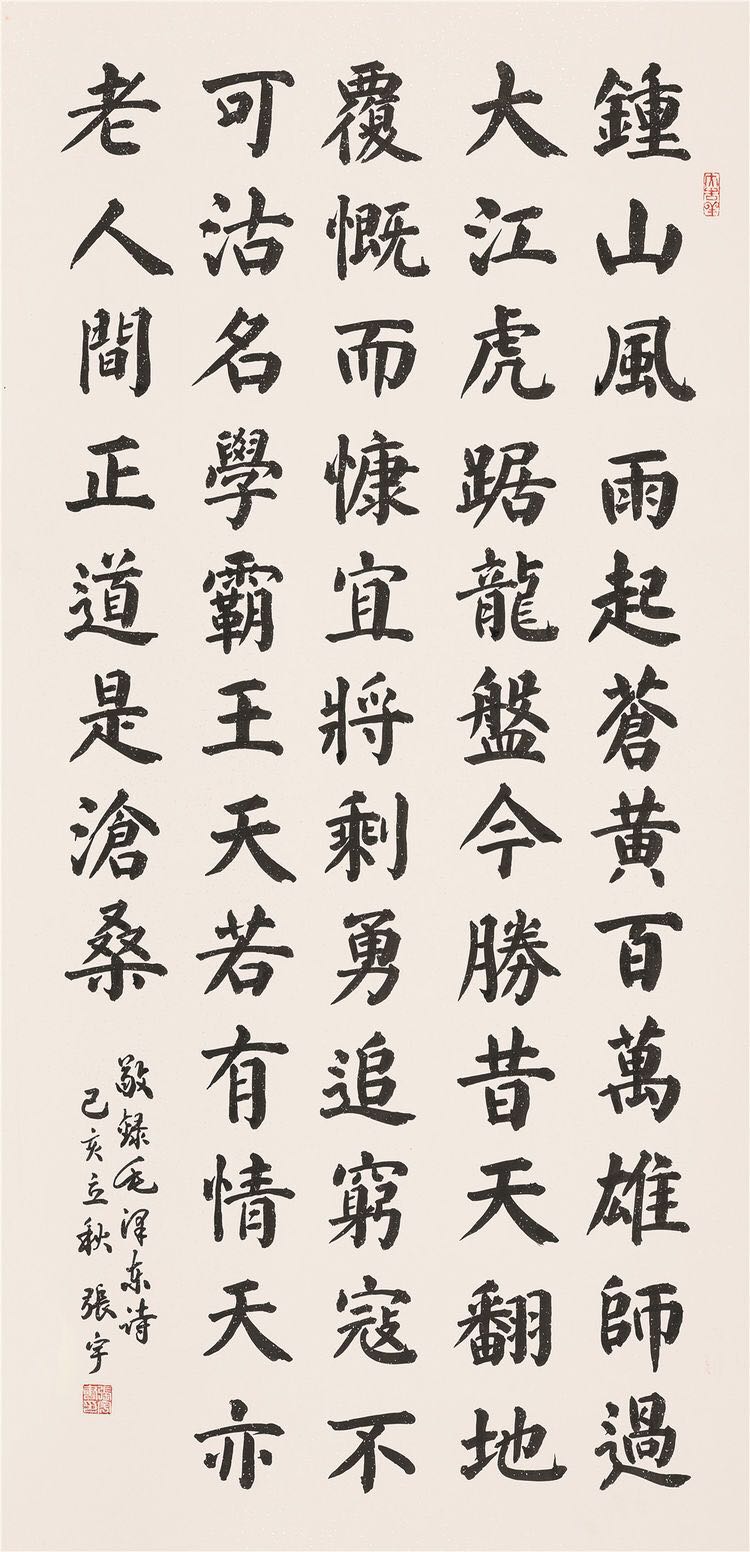 鍾山風雨起蒼黄百萬雄師過
大江虎踞龍盤今勝昔天翻地
覆慨而慷宜將剩勇追窮寇不
可沽名學霸王天若有情天亦
老人間正道是滄桑
敬録毛泽东诗
己亥立秋 張宇